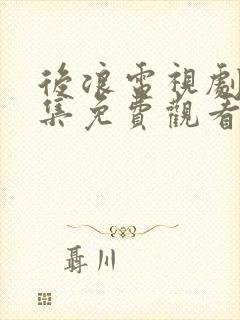 後浪電視劇
集免費觀看
聶川